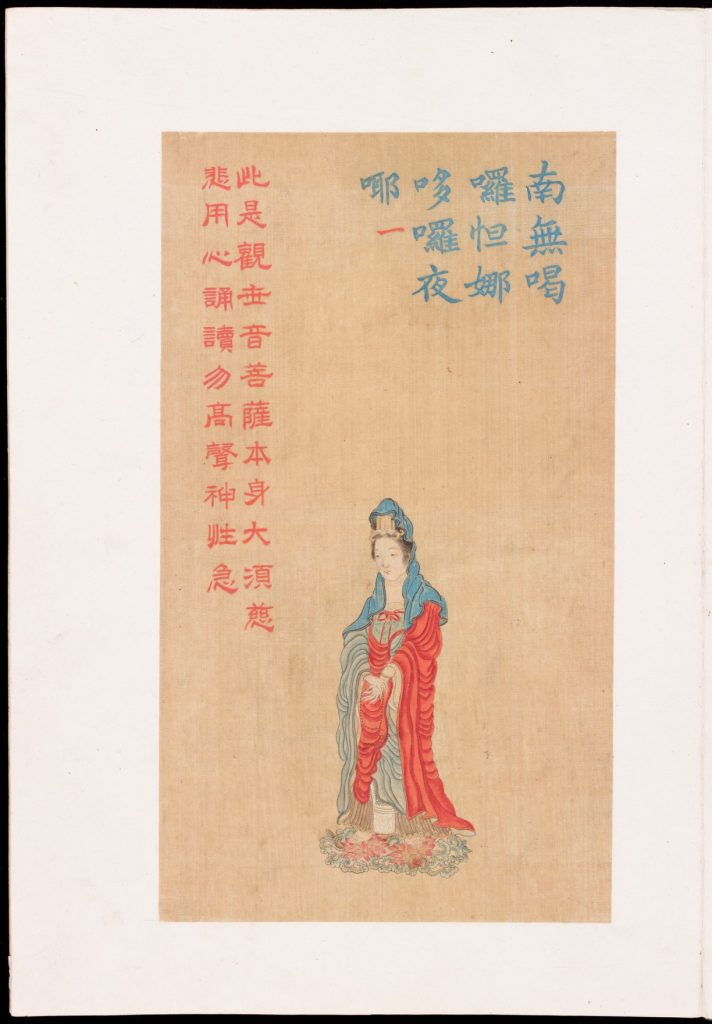 南無喝
囉怛娜
哆囉夜
耶一
此是觀世音菩薩本身大須慈
悲用心誦讀勿髙聲神性急